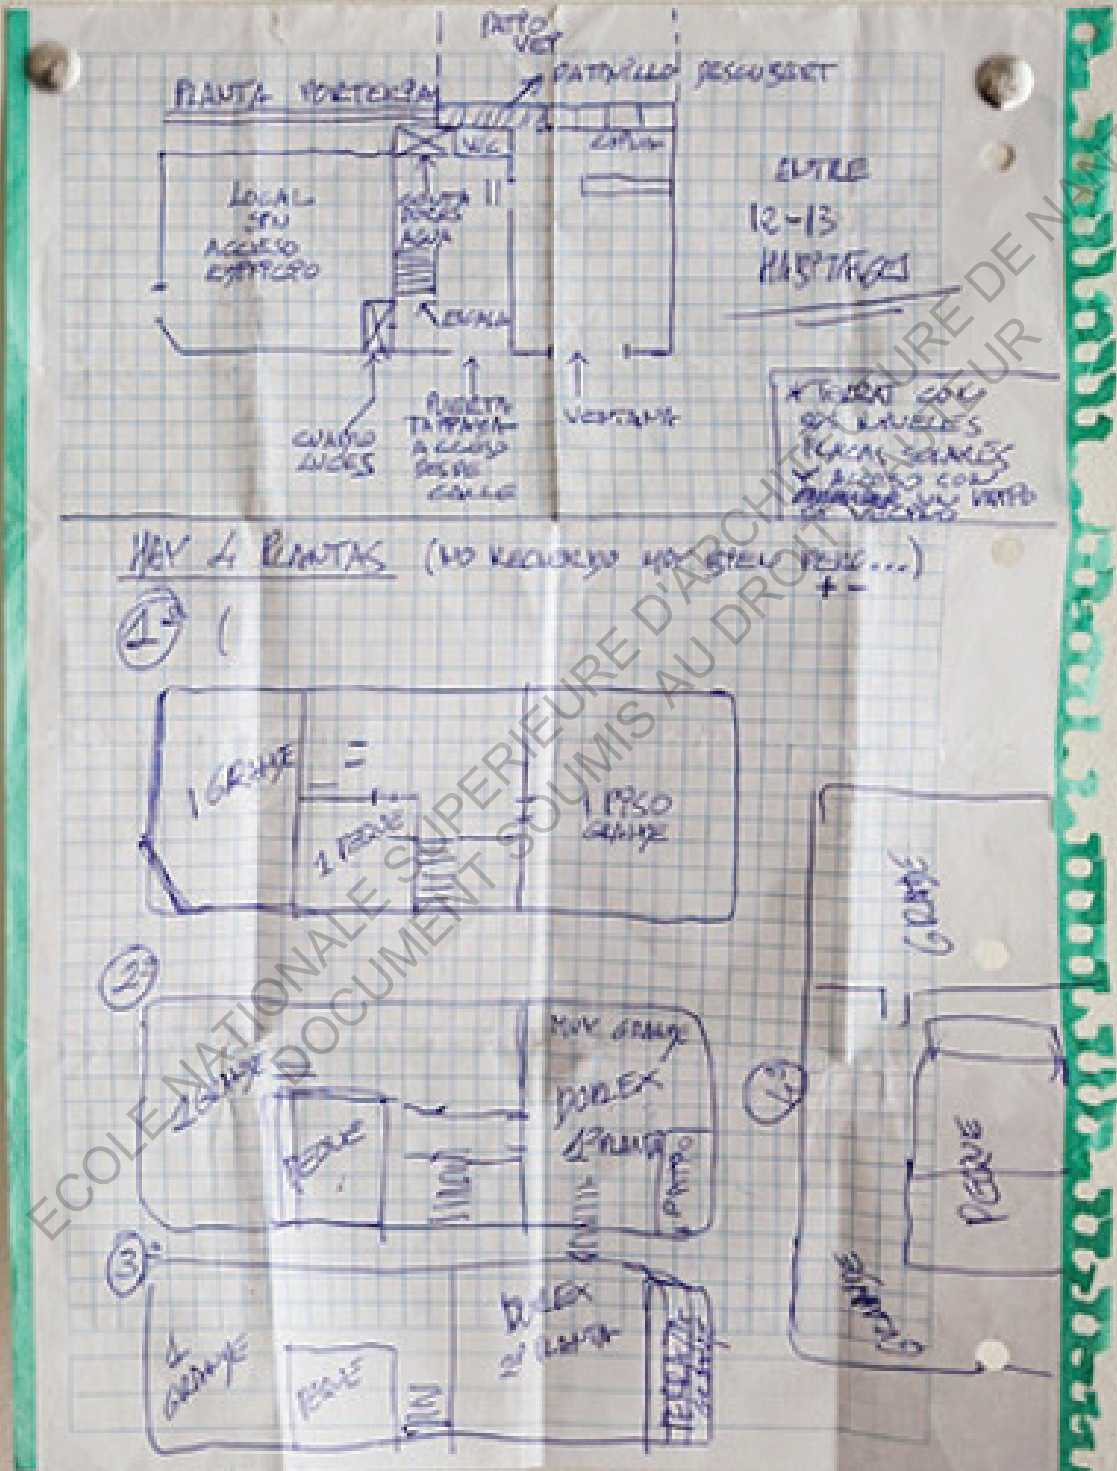 PATIO
VEÏ
PATINILLO DESCUBERT
PLANTA PORTERIA
WC
COCINA
LOCAL
SIN
ACCESO
AGUA
ESCALA
ENTRE
12-13
HABITATGES
CUADRO
LUCES
PUERTA
TAPIADA
ACCESO
DESDE
CALLE
VENTANA
* TERRAT CON
DOS NIVELES
PLACAS SOLARES
Y ACCESO CON
UN PATIO
HAY 4 PLANTAS (NO RECUERDO MUY BIEN PERO...)
+ -
1ª (
1 GRANDE
1 PEQUE
1 PISO
GRANDE
2ª
1 GRANDE
PEQUE
MUY GRANDE
DUPLEX
1ª PLANTA
PATIO
3ª
1
GRANDE
PEQUE
DUPLEX
2ª PLANTA
TERRAZA
GRANDE
4ª
GRANDE
PEQUE
GRANDE
ECOLE NATIONALE SUPERIEURE D'ARCHITECTURE DE NAN
DOCUMENT SOUMIS AU DROIT D'AUTEUR